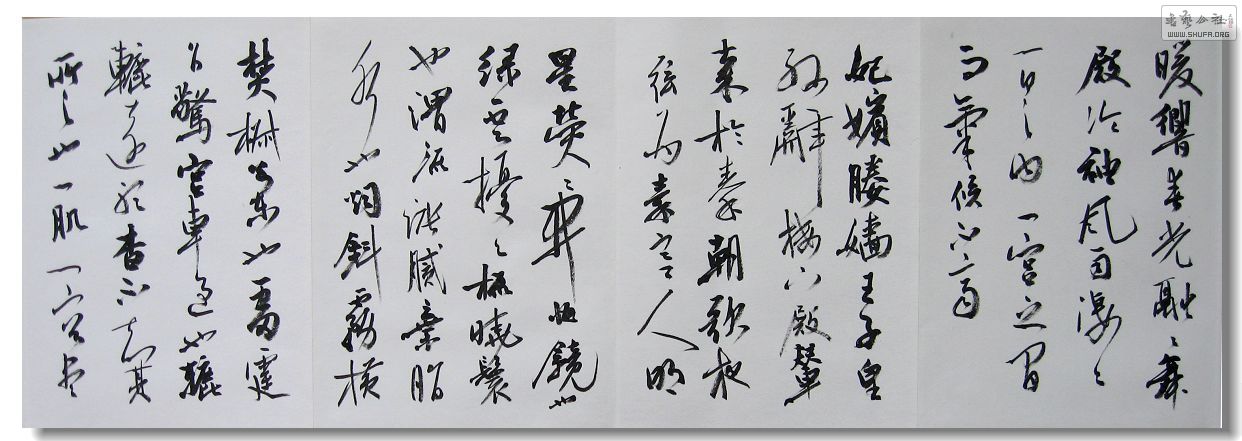 書藝公社
WWW.SHUFA.ORG
暖響春光融々舞
殿冷袖風雨淒々
一日之內一宮之間
而氣候不齊
妃嬪媵嬙王子皇
孫辭樓下殿輦
來於秦朝歌夜
弦為秦宮人明
星熒々開妝鏡也
綠雲擾々梳曉鬟
也渭流漲膩棄脂
水也烟斜霧橫
焚椒蘭也雷霆
乍驚宮車過也轆
轆遠聽杳不知其
所之也一肌一容盡